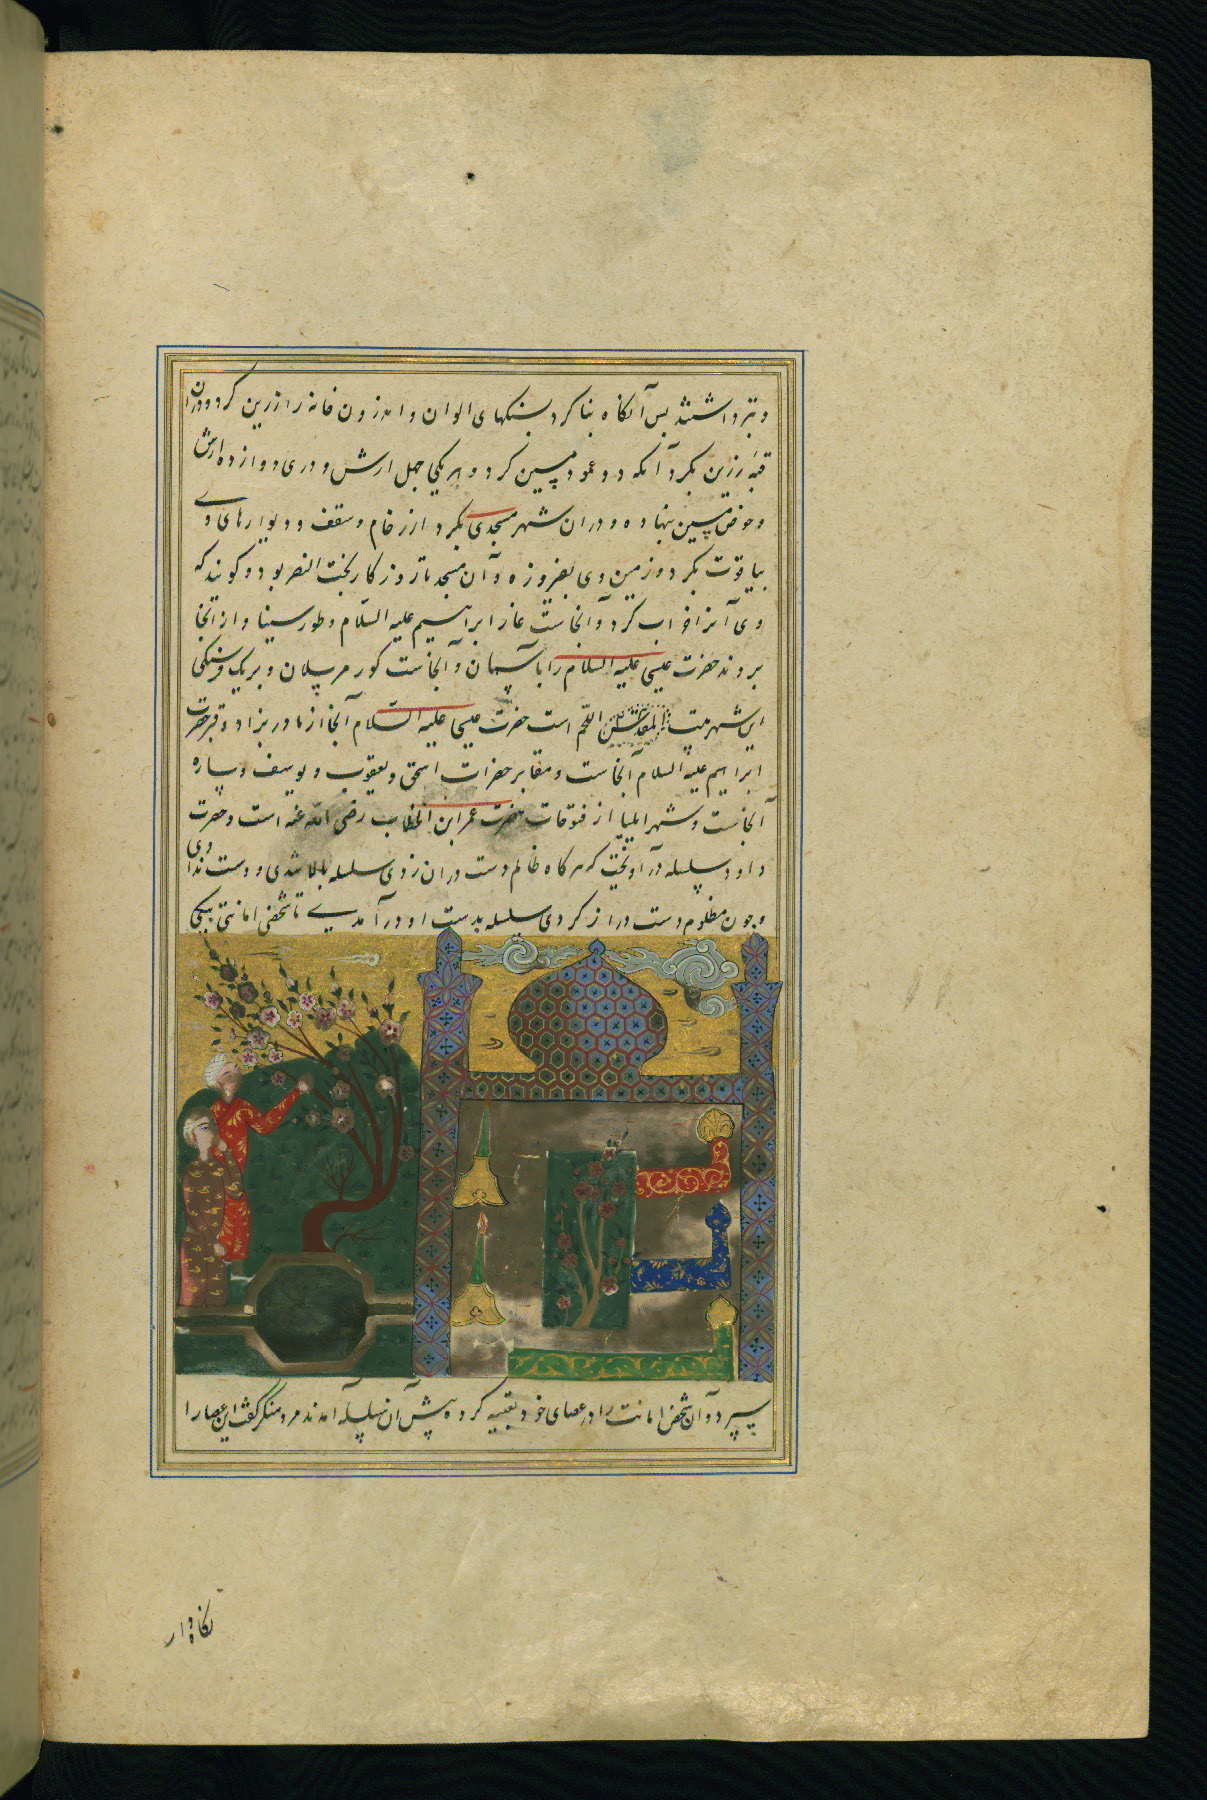 و تبرداشتند پس آنگاه بنا کرد بسنکهای الوان و اندرون خانه را زرین کرد و دران
قبه زرین بکرد آنکه دو عمود مسین کرد و هر یکی چهل ارش و دری دوازده ارش
و حوض مسین بنهاده و دران شهر مسجدی بکرد از رخام و سقف و دیوارهای وی
بیاقوت بکرد و زمین وی بفیروزه و آن مسجد تا روزکار بخت النصر بود و کویند که
وی آنرا خراب کرد و آنجاست غار ابراهیم علیه السلام و طور سینا و از انجا
بردند حضرت عیسی علیه السلام را بآسمان و آنجاست کور مرسلان و بر یک فرسنکی
این شهر بیت اللحم است حضرت عیسی علیه السلام آنجا از مادر بزاد و قبر حضرت
ابراهیم علیه السلام آنجاست و مقابر حضرات اسحق و یعقوب و یوسف و ساره
آنجاست و شهر ایلیا از فتوحات حضرت عمر ابن الخطاب رضی الله عنه است و حضرت
داود سلسله در آویخت که هر کاه ظالم دست دران زدی سلسله بالا شدی و دست ندادی
و چون مظلوم دست دراز کردی سلسله بدست او در آمدی تا شخصی امانتی بیکی
سپرد و آن شخص امانت را در عصای خود تعبیه کرده پیش آن سلسله آمدند مرد منکر کفت این عصا را
نکاه دار